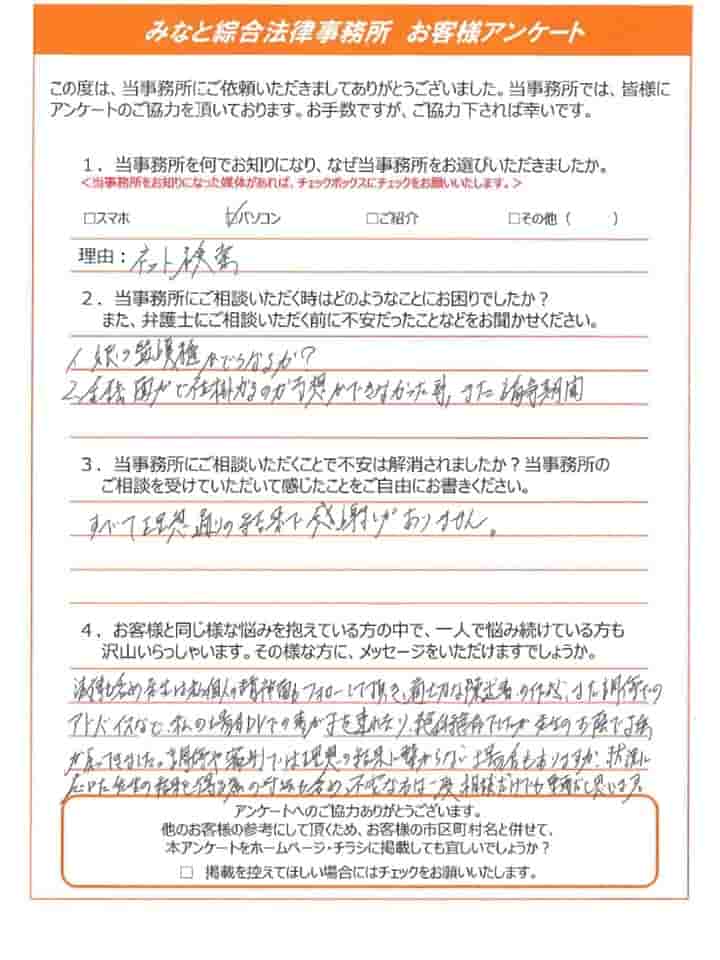 みなと綜合法律事務所 お客様アンケート
この度は、当事務所にご依頼いただきましてありがとうございました。当事務所では、皆様に
アンケートのご協力を頂いております。お手数ですが、ご協力下されば幸いです。
1．当事務所を何でお知りになり、なぜ当事務所をお選びいただきましたか。
＜当事務所をお知りになった媒体があれば、チェックボックスにチェックをお願いいたします。＞
□スマホ ☑パソコン □ご紹介 □その他（ ）
理由：ネット検索
2．当事務所にご相談いただく時はどのようなことにお困りでしたか？
また、弁護士にご相談いただく前に不安だったことなどをお聞かせください。
1、娘の監護権がどうなるか？
2、全検 が 仕掛 るのか予想ができなかった事、また 期間
3．当事務所にご相談いただくことで不安は解消されましたか？当事務所の
ご相談を受けていただいて感じたことをご自由にお書きください。
すべて理想通りの結果で感謝しかありません。
4．お客様と同じ様な悩みを抱えている方の中で、一人で悩み続けている方も
沢山いらっしゃいます。その様な方に、メッセージをいただけますでしょうか。
法律も含め先生は私個人の精神面もフォローして頂き、適切な陳述書の作成、また調停での
アドバイスなど、私の場合DVでの妻が子を連れ 、 先生のお陰で子供
が戻ってきました。調停や審判では理想の結果に繋がらない場合もありますが、状況に
応じた先生の 結果を得る為の も含め、不安な方は一度、相談だけでも 思います。
アンケートへのご協力ありがとうございます。
他のお客様の参考にして頂くため、お客様の市区町村名と併せて、
本アンケートをホームページ・チラシに掲載しても宜しいでしょうか？
□ 掲載を控えてほしい場合にはチェックをお願いいたします。